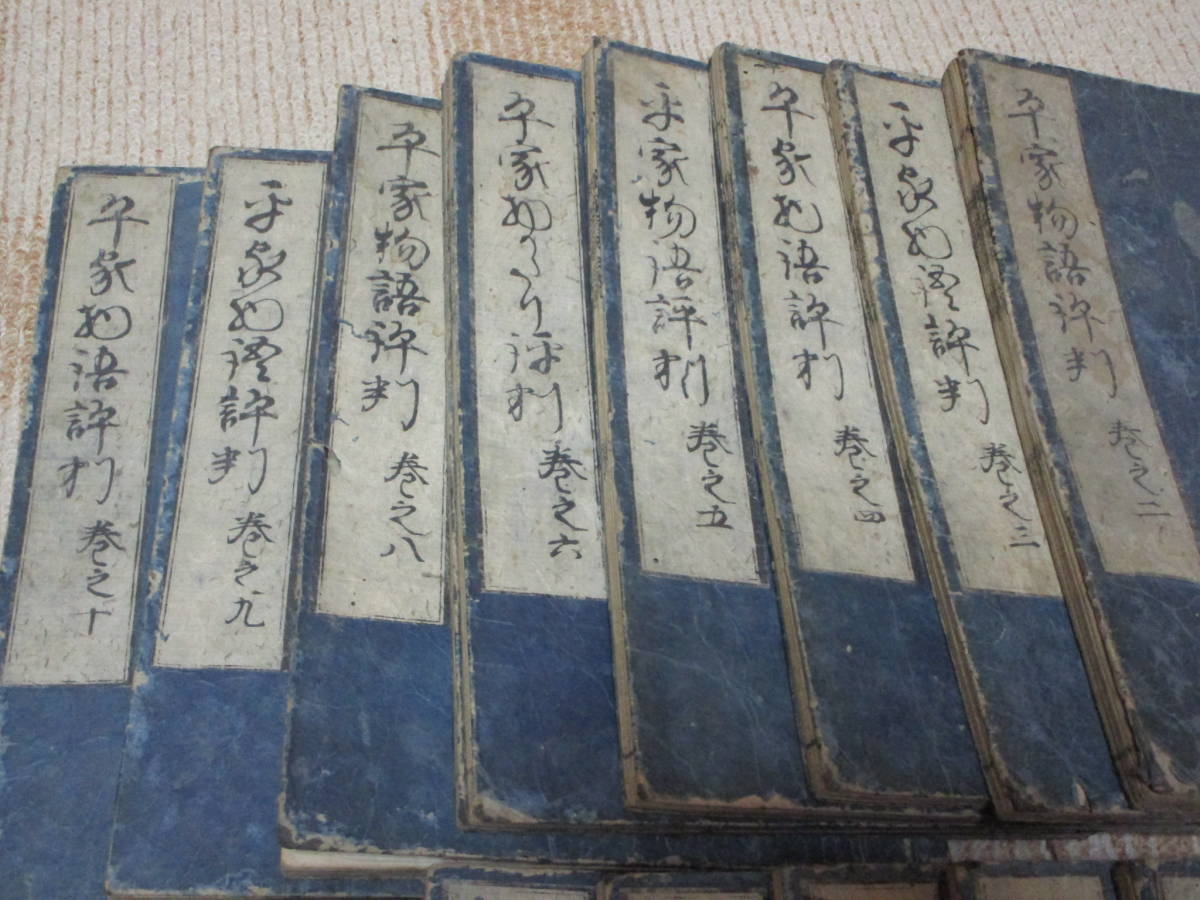 平家物語評判 巻之二
平家物語評判 巻之三
平家物語評判 巻之四
平家物語評判 巻之五
平家物かたり評判 巻之六
平家物語評判 巻之八
平家物語評判 巻之九
平家物語評判 巻之十